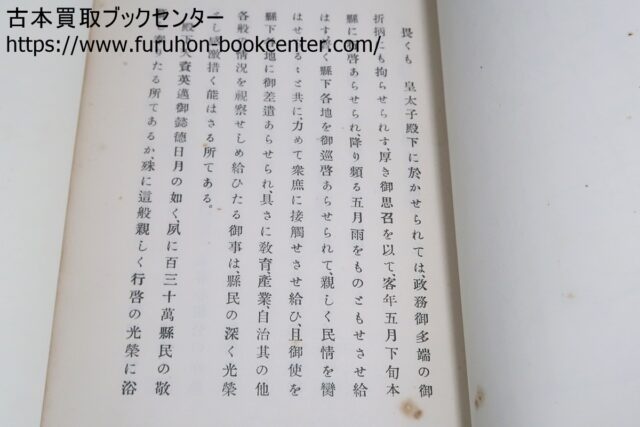 古本買取ブックセンター
https://www.furuhon-bookcenter.com/
畏くも　皇太子殿下に於かせられては、政務御多端の御
折柄にも拘らせられす、厚き御思召を以て、客年五月下旬本
縣に行啓あらせられ、降り頻る五月雨をものともせさせ給
はす、 く縣下各地を御巡啓あらせられて、親しく民情を臠
はせらるゝと共に、力めて衆庶に接觸せさせ給ひ、且御使を
縣下各地に御差遣あらせられ、具さに敎育、產業、自治其の他
各般の情況を視察せしめ給ひたる御事は、縣民の深く光榮
とし感激措く能はさる所てある。
殿下天資英邁御懿德日月の如く、夙に百三十萬縣民の敬
りたる所てあるか、殊に這般親しく行啓の光榮に浴